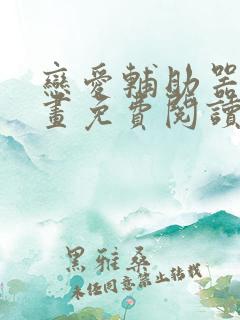 戀愛輔助器
畫免費閱讀
黑雅桑
未任同意禁止转载